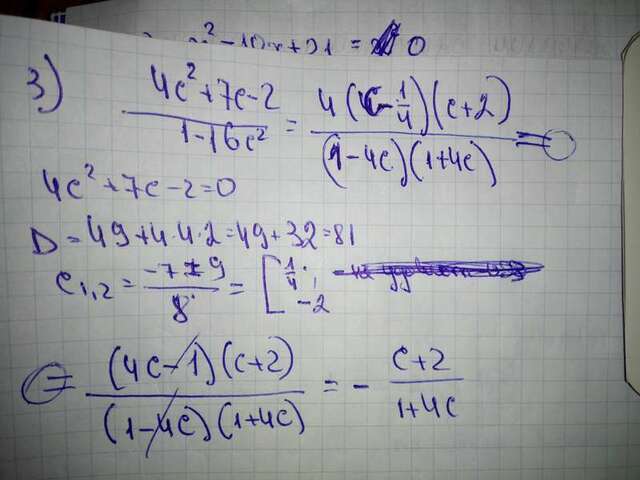 3) (4c²+7c-2)/(1-16c²) = (4(c-1/4)(c+2))/((1-4c)(1+4c)) =
4c²+7c-2=0
D=49+4·4·2=49+32=81
c₁,₂ = (-7±9)/8 = [1/4; -2
= ((4c-1)(c+2))/((1-4c)(1+4c)) = - (c+2)/(1+4c)